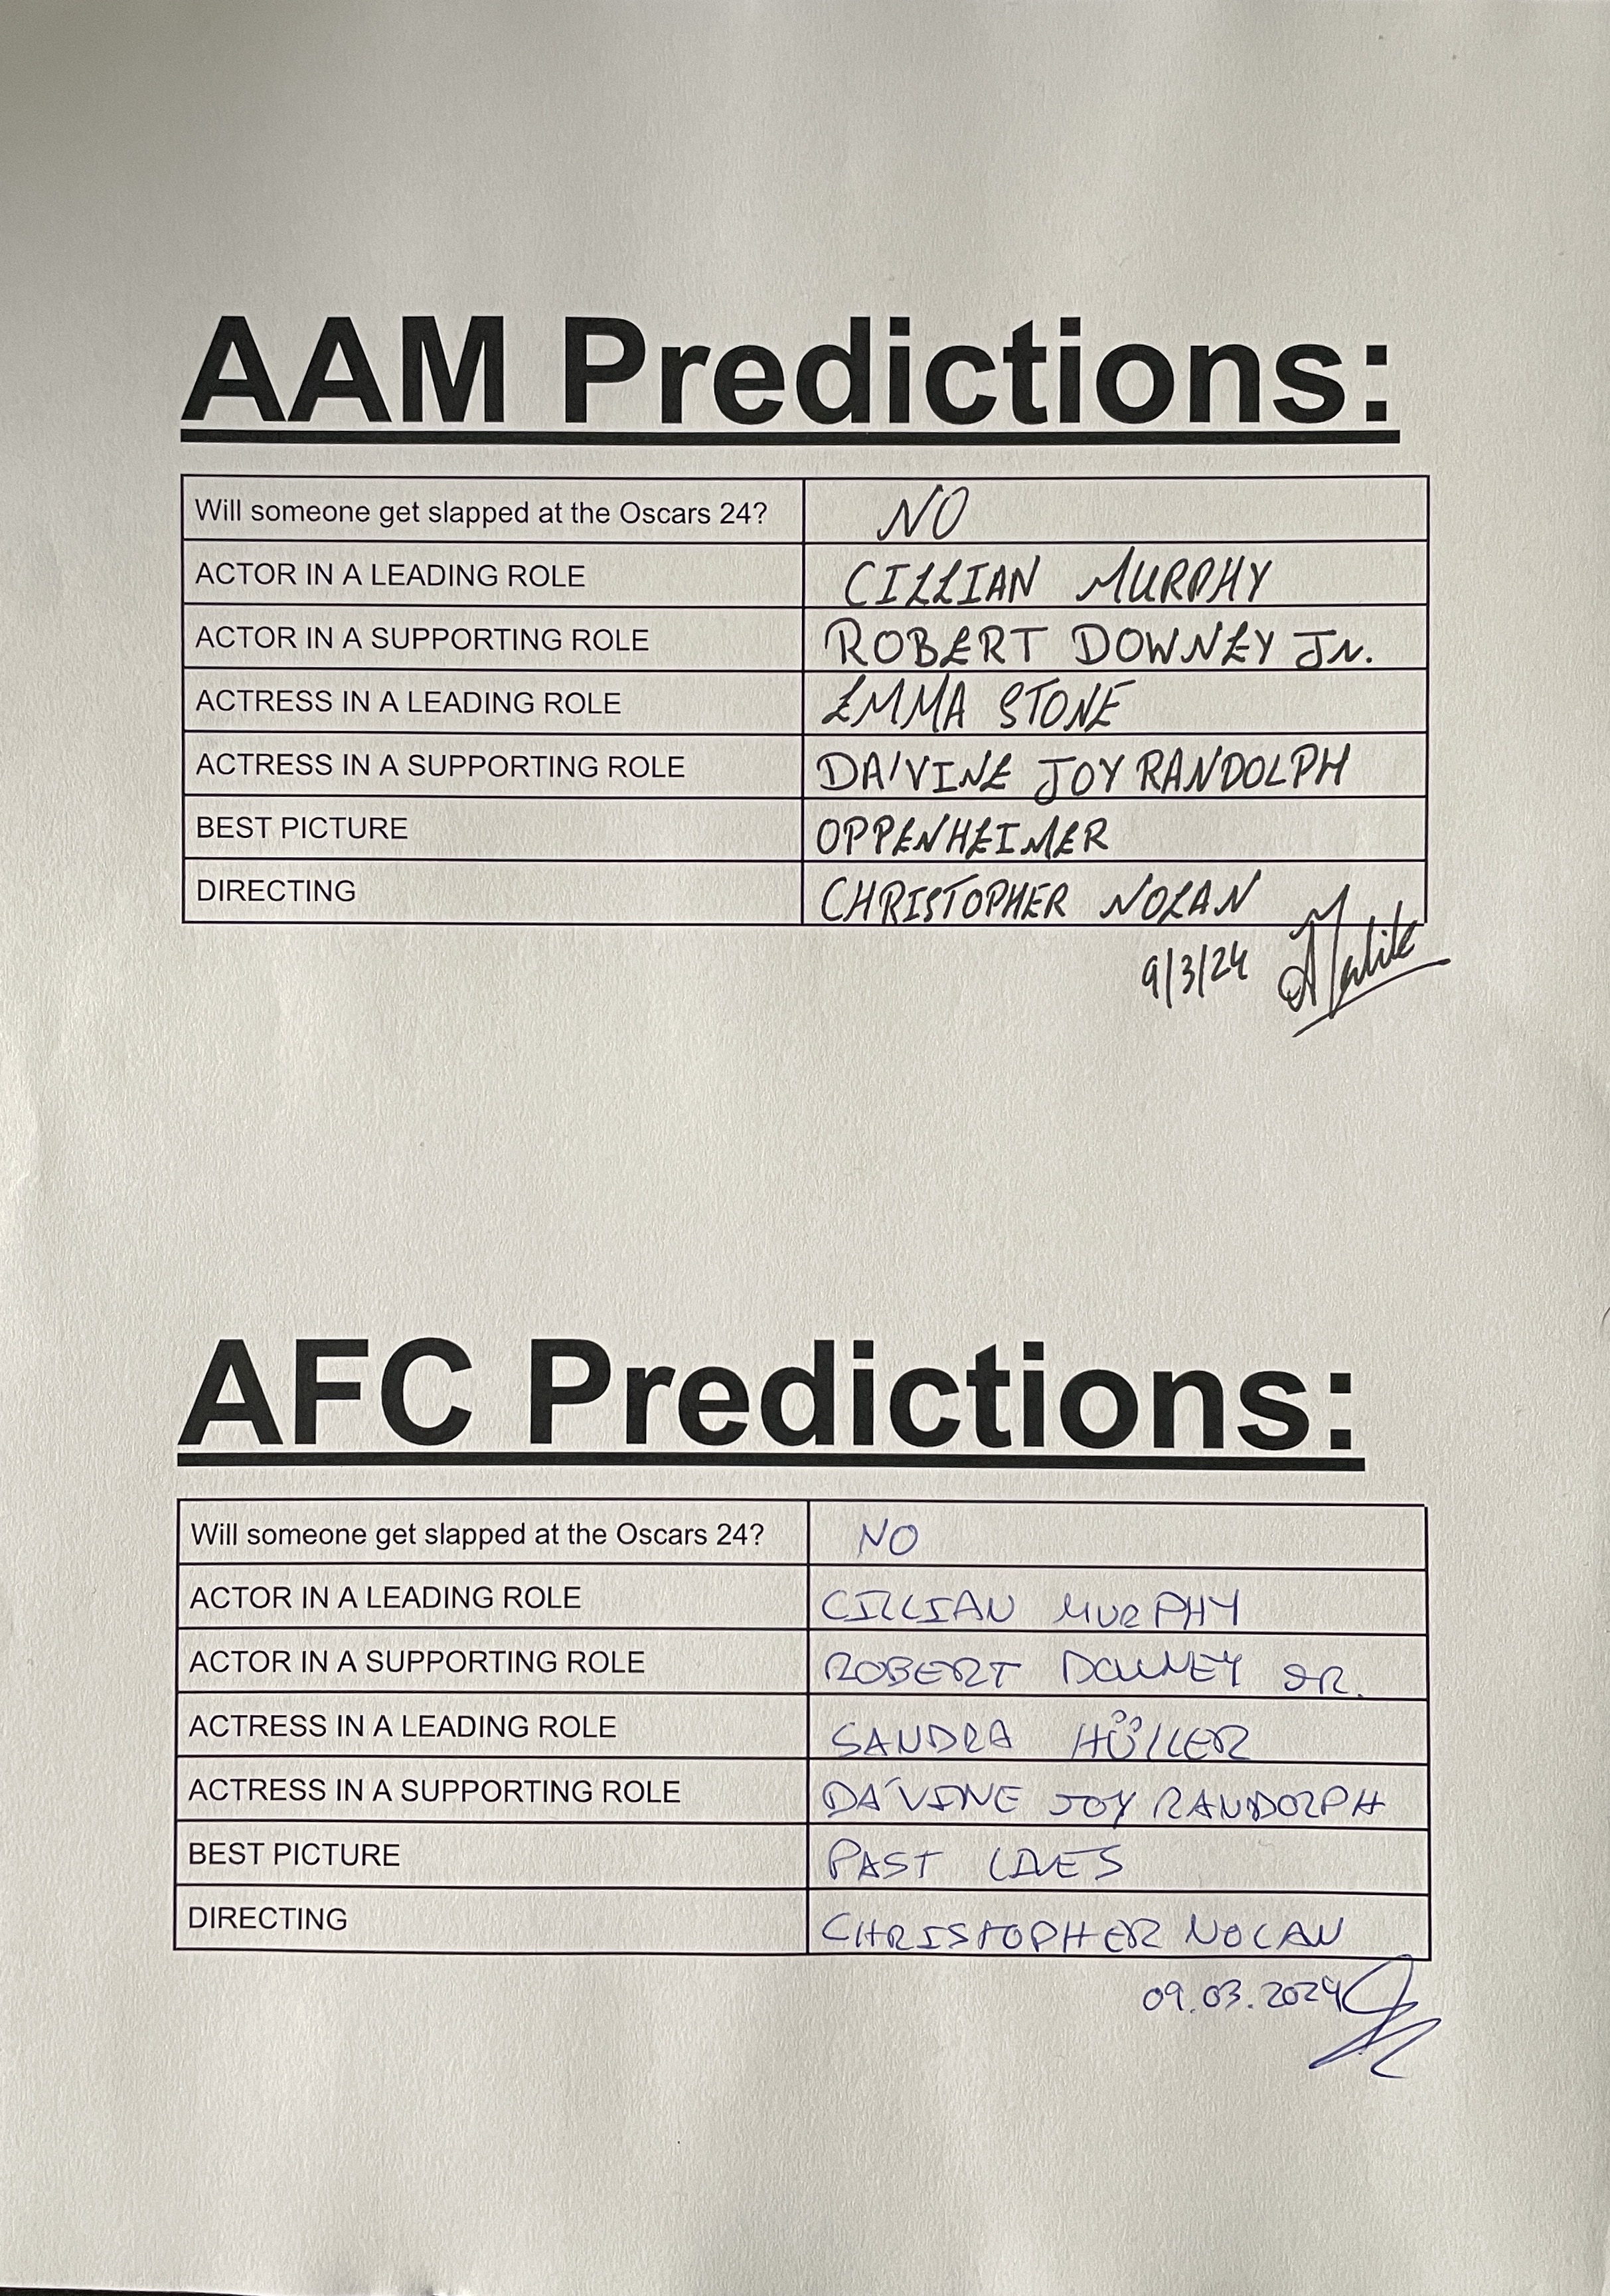 AAM Predictions:
Will someone get slapped at the Oscars 24? NO
ACTOR IN A LEADING ROLE CILLIAN MURPHY
ACTOR IN A SUPPORTING ROLE ROBERT DOWNEY Jr.
ACTRESS IN A LEADING ROLE EMMA STONE
ACTRESS IN A SUPPORTING ROLE DA'VINE JOY RANDOLPH
BEST PICTURE OPPENHEIMER
DIRECTING CHRISTOPHER NOLAN
9/3/24
AFC Predictions:
Will someone get slapped at the Oscars 24? NO
ACTOR IN A LEADING ROLE CILLIAN MURPHY
ACTOR IN A SUPPORTING ROLE ROBERT DOWNEY JR.
ACTRESS IN A LEADING ROLE SANDRA HÜLLER
ACTRESS IN A SUPPORTING ROLE DA'VINE JOY RANDOLPH
BEST PICTURE PAST LIVES
DIRECTING CHRISTOPHER NOLAN
09.03.2024